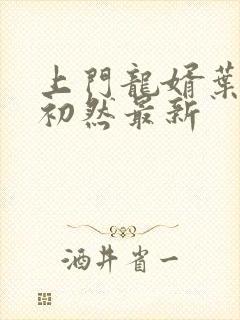 上門龍婿葉
初然最新
酒井省一